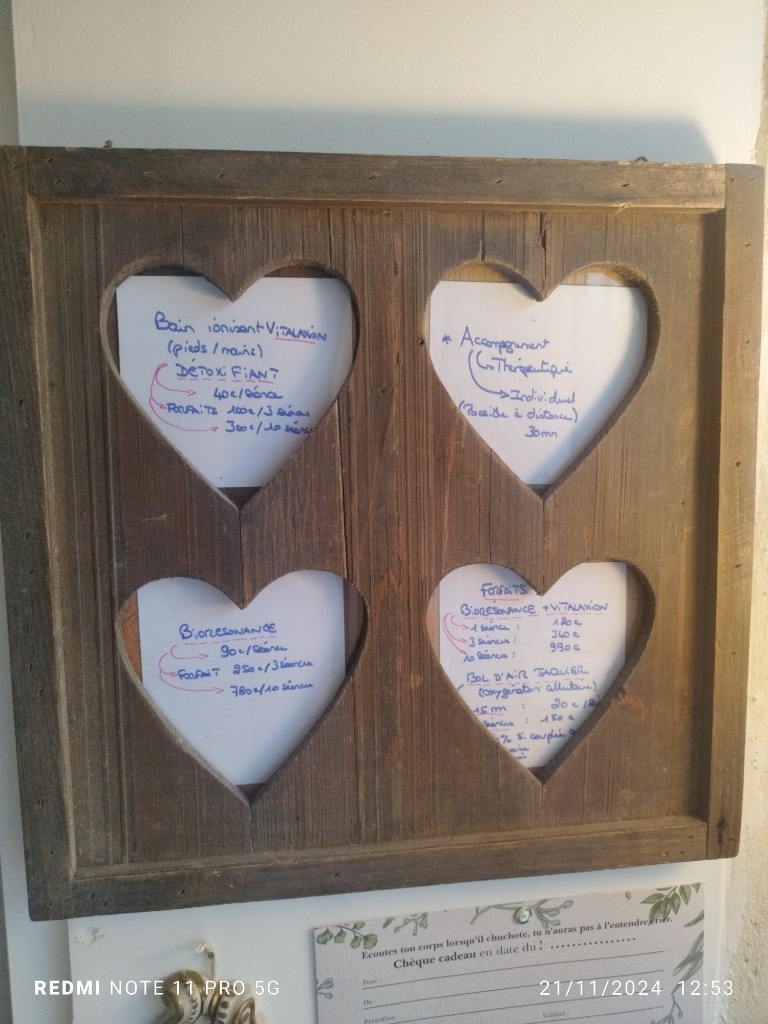 Bain ionisant VITALAXION
(pieds / mains)
DÉTOXIFIANT
40€/séance
FORFAITS 100€/3 séances
300€/10 séances
* Accompagnement
Thérapeutique
Individuel
(Possible à distance)
30mn
BIORESONANCE
90€/séance
FORFAIT 250€/3 séances
780€/10 séances
FORFAITS
BIORESONANCE + VITALAXION
1 séance : 120€
3 séances : 340€
10 séances : 990€
BOL D'AIR JAQUIER
(oxygénation cellulaire)
15 mn : 20€
séances : 150€
% si couplée
Ecoutes ton corps lorsqu'il chuchote, tu n'auras pas à l'entendre crier.
Chèque cadeau en date du : ................
Pour :
De :
Prestation
Validité :
REDMI NOTE 11 PRO 5G
21/11/2024 12:53